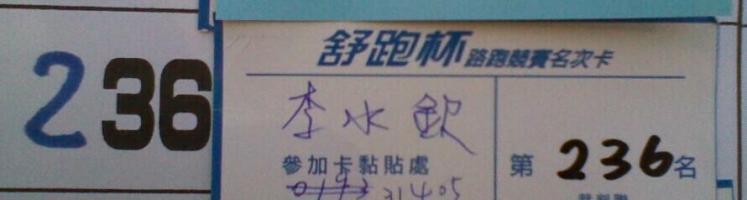 236
舒跑杯路跑競賽名次卡
李水欽
參加卡黏貼處
第236名
31405